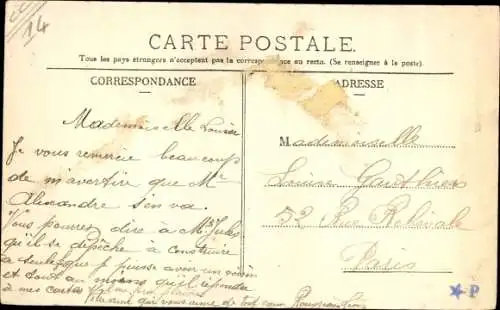 14
CARTE POSTALE
Tous les pays étrangers n'acceptent pas la correspondance au recto. (Se renseigner à la poste).
CORRESPONDANCE
ADRESSE
Mademoiselle Louise
Je vous remercie beaucoup
de m'avertire que Mr
Alexandre s'en va.
Vous pouvez dire à Mr Jules
qu'il se dépêche à construire
a seule que je puisse avoir un
et tout au moins qu'il réponde
à mes cartes
qui vous aime de tout cœur
Mademoiselle
Louise Gauthier
52 Rue
Paris
P